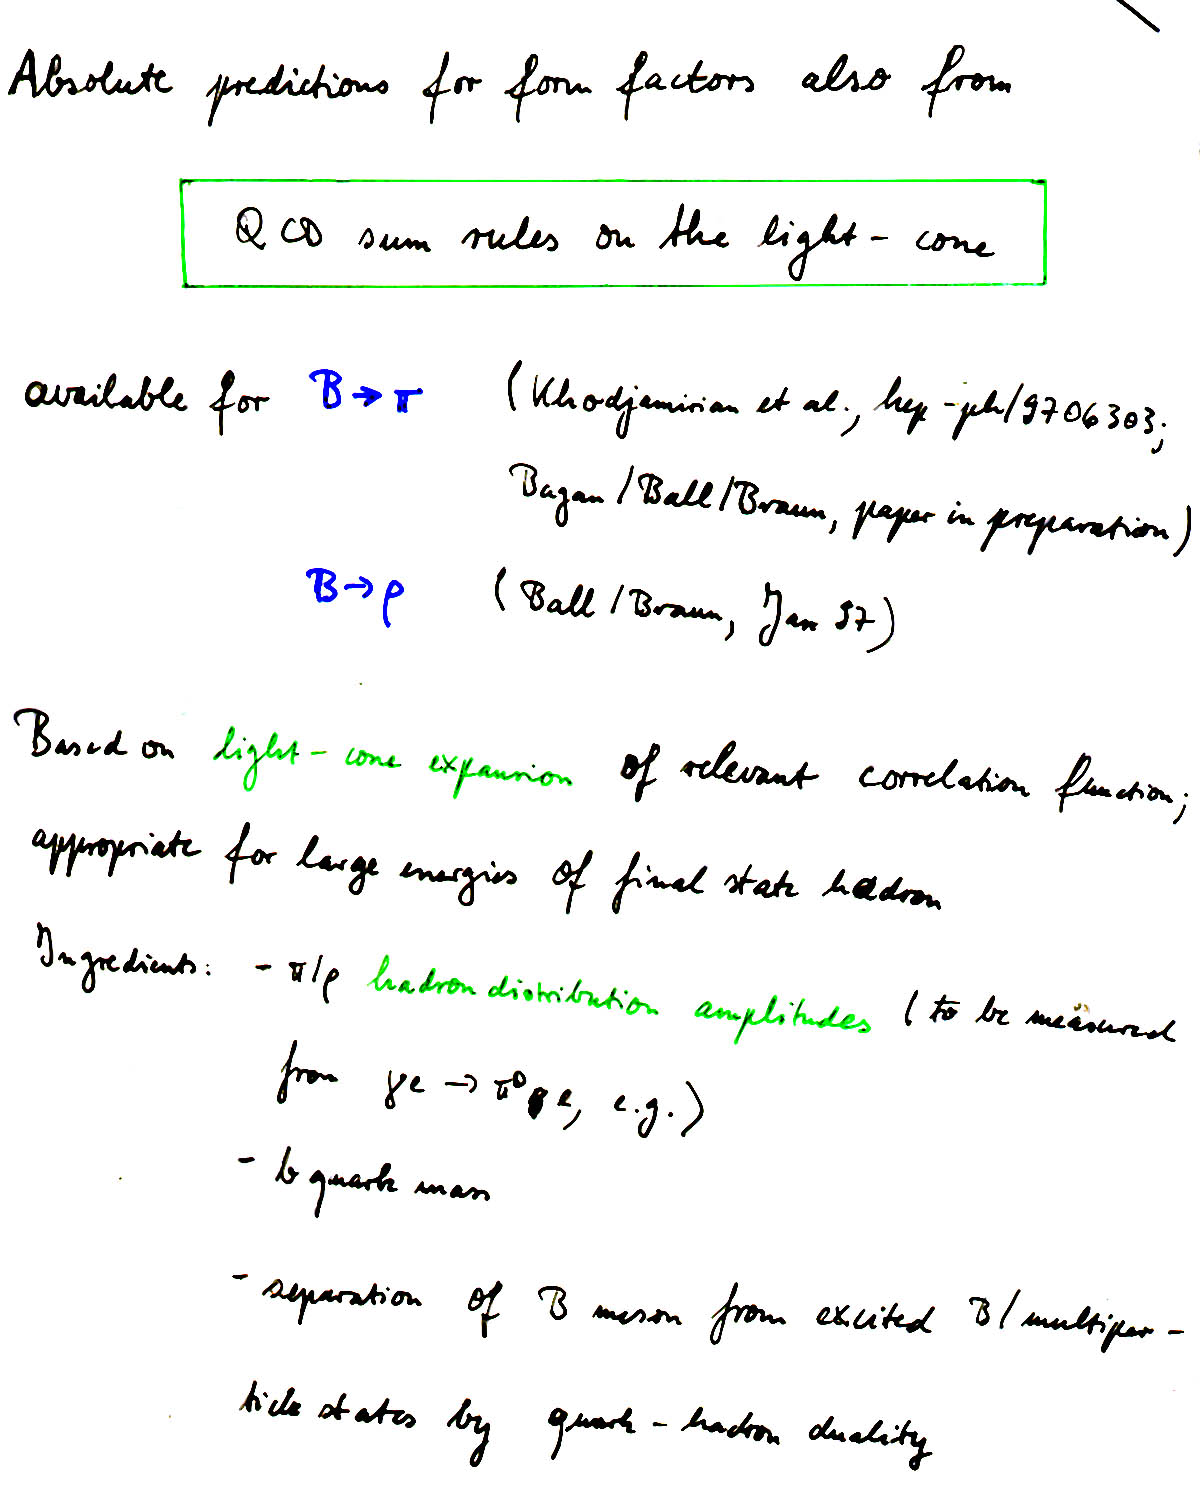 Absolute predictions for form factors also from
QCD sum rules on the light-cone
available for B→π (Khodjamirian et al., hep-ph/9706303;
Bagan/Ball/Braun, paper in preparation)
B→ρ (Ball/Braun, Jan 97)
Based on light-cone expansion of relevant correlation function;
appropriate for large energies of final state hadron
Ingredients: - π/ρ hadron distribution amplitudes (to be measured
from γe → π⁰ e, e.g.)
- b quark mass
- separation of B meson from excited B/multipar-
ticle states by quark-hadron duality